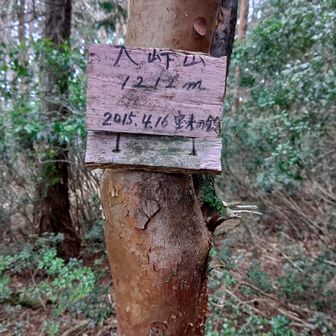 入峠山
1212m
2015.4.16 宝来の鈴